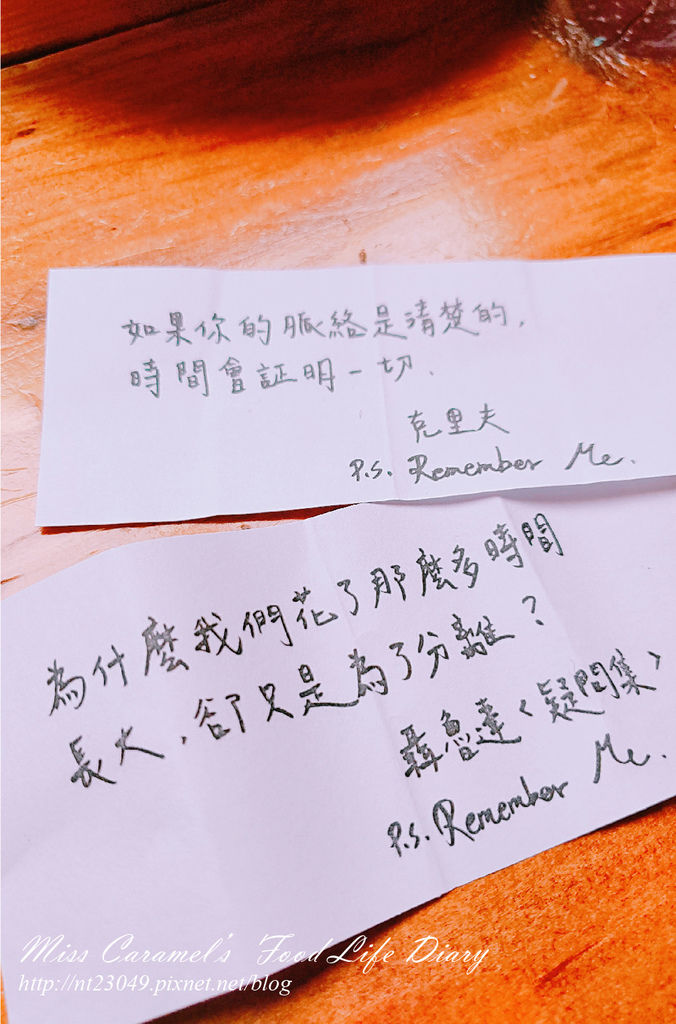 如果你的脈絡是清楚的,
時間會証明一切.
克里夫
P.S. Remember Me.
為什麼我們花了那麼多時間
長大,卻只是為了分離?
聶魯達<疑問集>
P.S. Remember Me.
Miss Caramel's Food Life Diary
http://nt23049.pixnet.net/blog